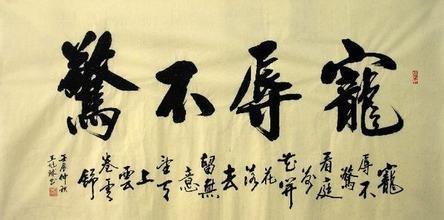 寵辱不驚
寵
辱不
驚
看庭
前
花開
花
落
去
留無
意
望天
上
雲
卷雲
舒
壬辰仲秋